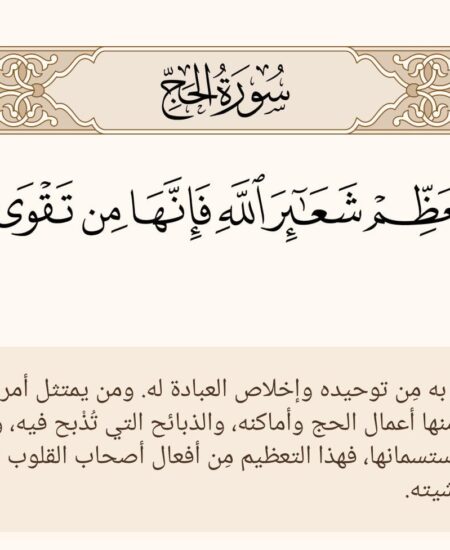 سُورَةُ الحَجِّ
عَظِّمۡ شَعَـٰٓئِرَ ٱللَّهِ فَإِنَّهَا مِن تَقۡوَى
به مِن توحيده وإخلاص العبادة له. ومن يمتثل أمر
منها أعمال الحج وأماكنه، والذبائح التي تُذْبح فيه، و
ستسمانها، فهذا التعظيم مِن أفعال أصحاب القلوب
شيته.